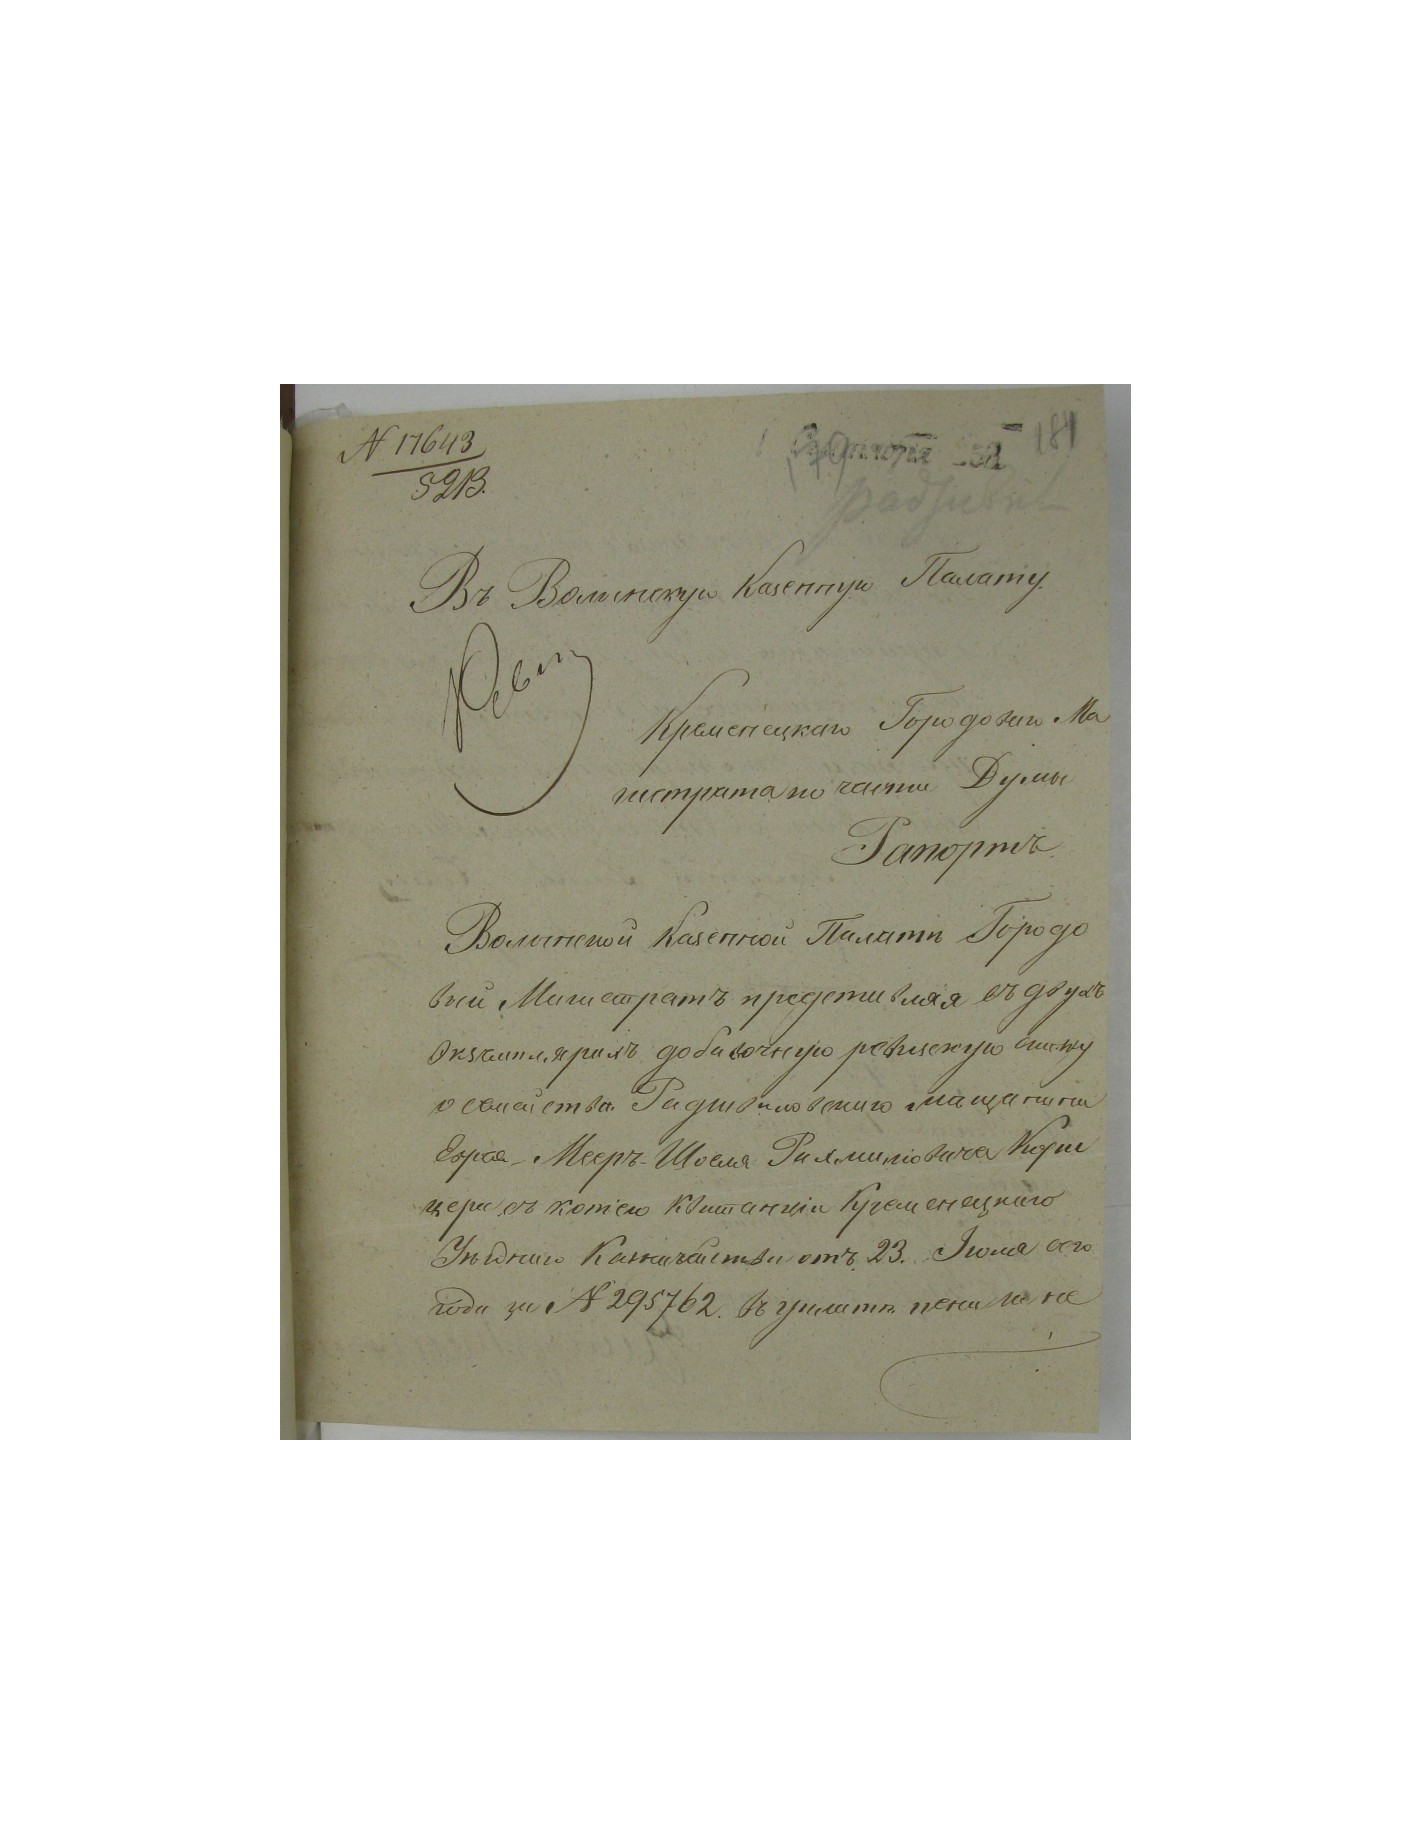 N 17643
181
Въ Волынскую Казенную Палату.
Ревиз
Кременецкаго Городоваго Ма
гистрата по части Думы
Рапортъ.
Волынской Казенной Палатѣ Городо
вый Магистратъ представляя въ двухъ
экземплярахъ добавочную ревизскую скаску
о семействѣ Радзивиловскаго мѣщанина
Еврея Мееръ-Шоеля
цера съ копіею квитанціи Кременецкаго
Уѣзднаго Казначейства отъ 23. Іюля сего
года за N 295762. въ уплатѣ пени не